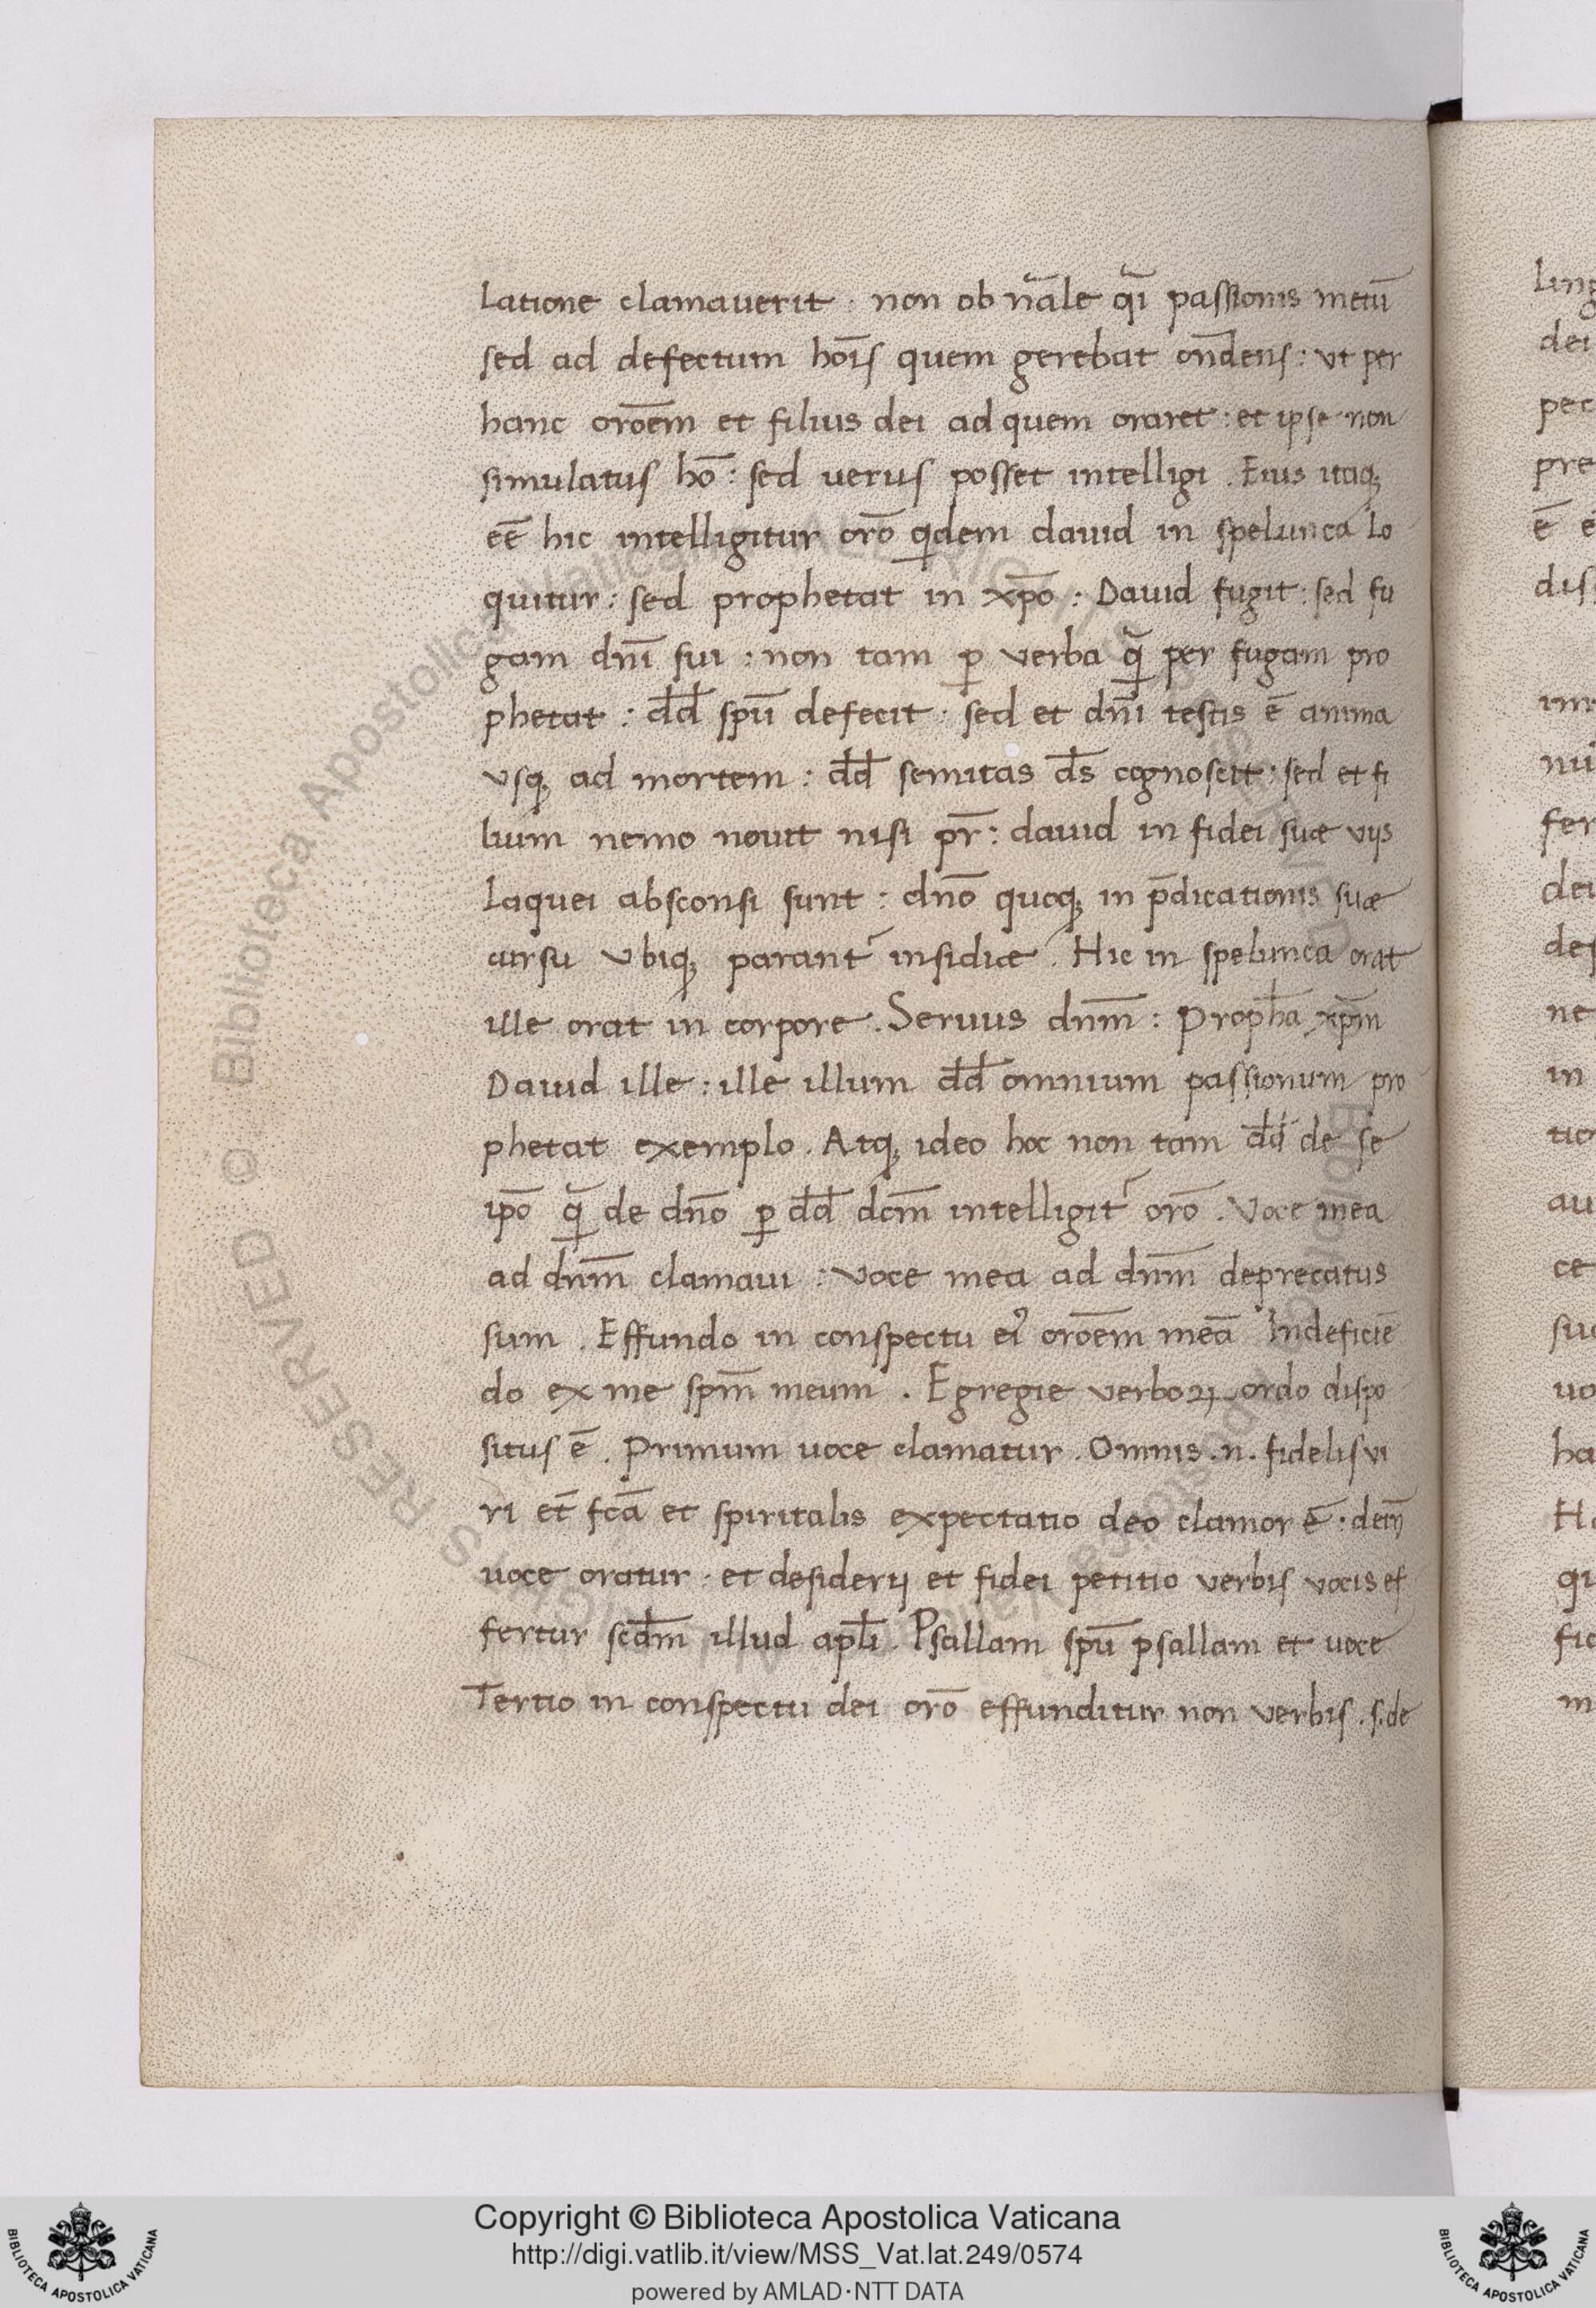 latione clamauerit · non ob nāle qᷓi passionis metū
sed ad defectum hoīs quem gerebat on̄dens : vt per
hanc oroēm et filius dei ad quem oraret : et ipse non
simulatus hō : sed uerus posset intelligi . Eius itaq;
eē hic intelligitur orō qͥdem dauid in spelunca lo
quitur : sed prophetat in xp̄o : Dauid fugit : sed fu
gam dn̄i sui : non tam ꝑ verba qᷓ per fugam pro
phetat : dd̄ spū defecit · sed et dn̄i testis ē anima
vsq; ad mortem : dd̄ semitas ds̄ cognoscit : sed et fi
lium nemo nouit nisi pr̄ : dauid in fidei suæ vijs
laquei absconsi sunt : dn̄o quoq; in p̄dicationis suæ
cursu vbiq; parant᷑ insidiæ . Hic in spelunca orat
ille orat in corpore . Seruus dn̄m : Propħa xp̄m
Dauid ille : ille illum dd̄ omnium passionum pro
phetat exemplo . Atq; ideo hoc non tam dd̄ de se
ip̄o qᷓ de dn̄o ꝑ dd̄ dcm̄ intelligit᷑ orō . Voce mea
ad dn̄m clamaui : voce mea ad dn̄m deprecatus
sum . Effundo in conspectu eiꝰ oroēm meā Indeficiē
do ex me spm̄ meum . Egregie verboꝝ ordo dispo
situs ē . Primum uoce clamatur . Omnis .n. fidelis vi
ri et̄ fcā et spiritalis expectatio deo clamor ē : dein̄
uoce oratur · et desiderij et fidei petitio verbis vocis ef
fertur scd̄m illud apl̄i . Psallam spū psallam et uoce
Tertio in conspectu dei orō effunditur non verbis . s. de
Copyright © Biblioteca Apostolica Vaticana
http://digi.vatlib.it/view/MSS_Vat.lat.249/0574
powered by AMLAD·NTT DATA